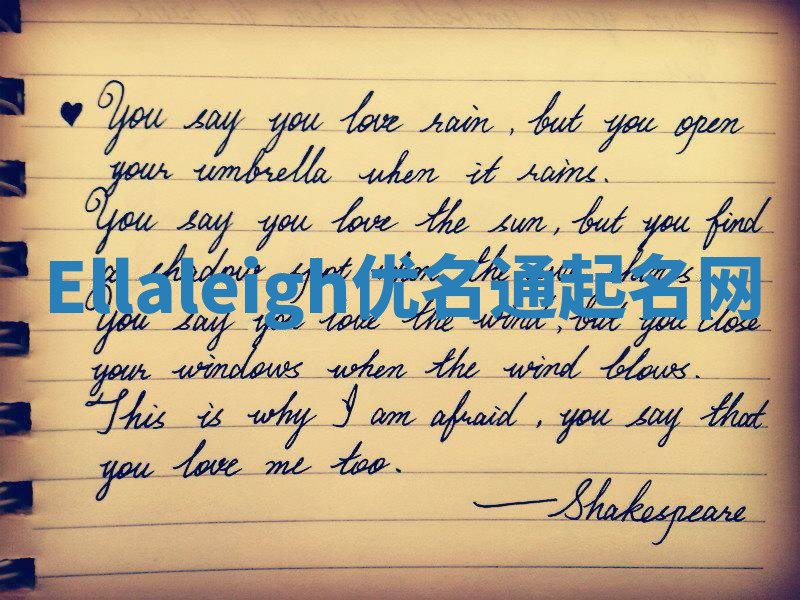 ♥ You say you love rain, but you open
your umbrella when it rains.
You say you love the sun, but you find
a shadow spot when the sun shines
Ellaleigh优名通起名网
You say you love the wind, but you close
your windows when the wind blows.
This is why I am afraid, you say that
you love me too.
—Shakespeare